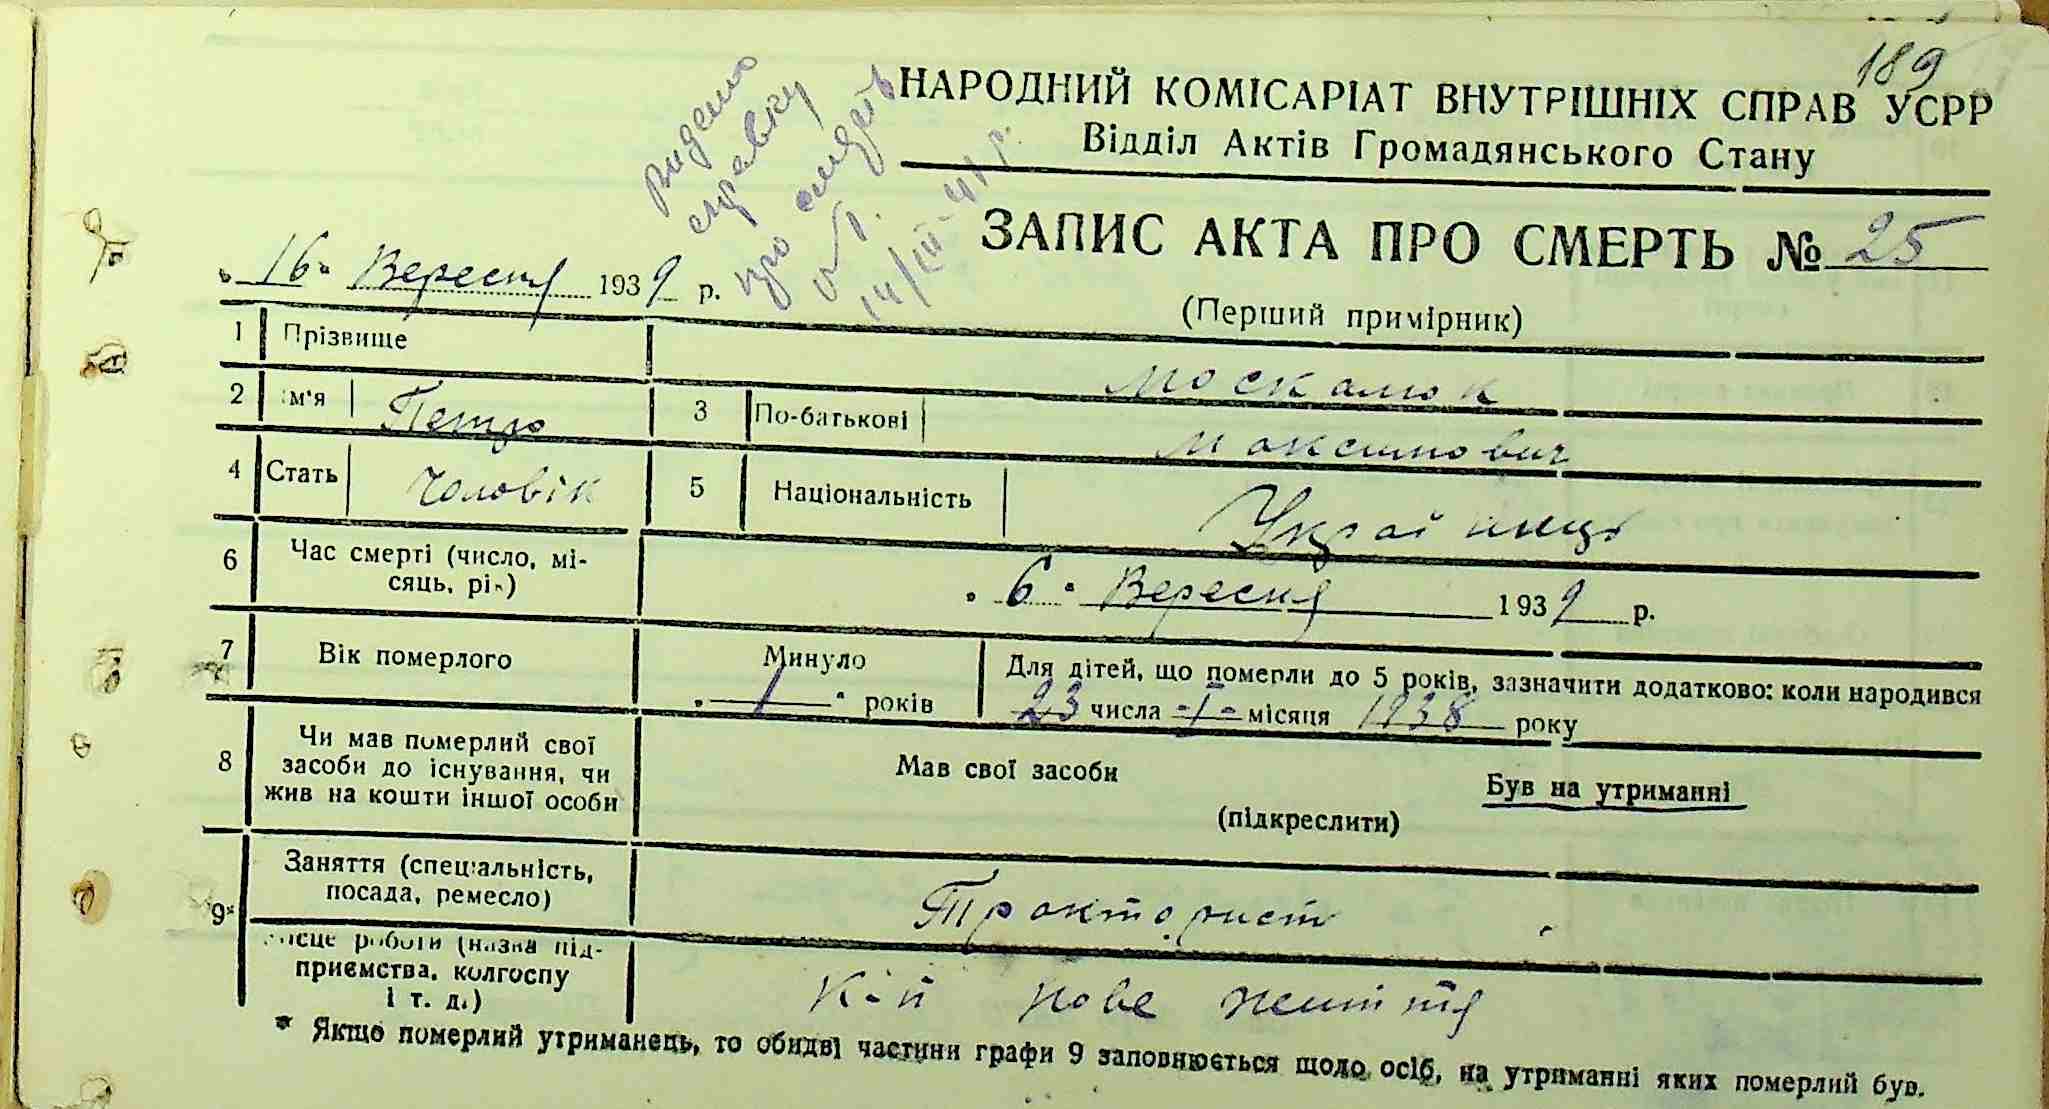 189
НАРОДНИЙ КОМІСАРІАТ ВНУТРІШНІХ СПРАВ УСРР
Відділ Актів Громадянського Стану
Видено
справку
про смерть
14/III-41 р.
ЗАПИС АКТА ПРО СМЕРТЬ № 25
„16" Вересня 1939 р.
(Перший примірник)
1 Прізвище Москалюк
2 Ім'я Петро 3 По-батькові Максимович
4 Стать чоловік 5 Національність Українець
6 Час смерті (число, мі-
сяць, рік) „6" Вересня 1939 р.
7 Вік померлого Минуло „1" років Для дітей, що померли до 5 років, зазначити додатково: коли народився
23 числа -I- місяця 1938 року
8 Чи мав померлий свої
засоби до існування, чи
жив на кошти іншої особи
Мав свої засоби Був на утриманні
(підкреслити)
9* Заняття (спеціальність,
посада, ремесло) Тракторист
Місце роботи (назва під-
приємства, колгоспу
і т. д.) К-п нове життя
* Якщо померлий утриманець, то обидві частини графи 9 заповнюється щодо осіб, на утриманні яких померлий був.